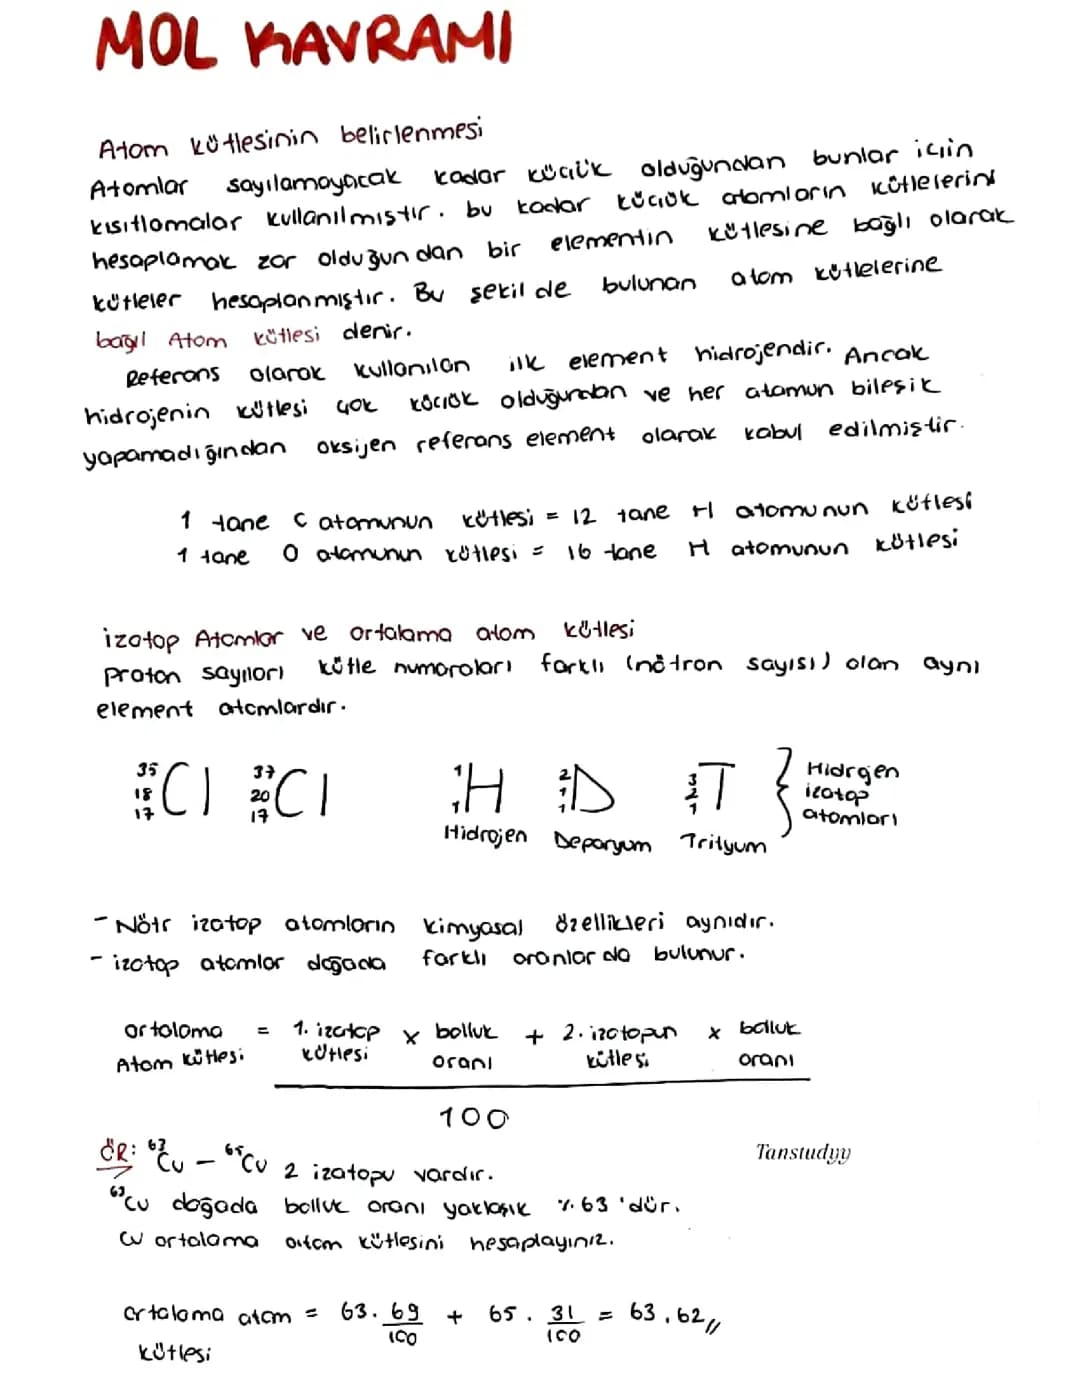 MOL KAVRAMI
Atom kütlesinin belirlenmesi
Atomlar sayılamayacak kadar küçük olduğundan bunlar için
kısıtlamalar kullanılmıştır. bu kadar küçük atomların kütlelerini
hesaplamak zor olduğundan bir elementin kütlesine bağlı olarak
kütleler hesaplanmıştır. Bu şekilde bulunan atom kütlelerine
bağıl Atom kütlesi denir.
Referans olarak kullanılan ilk element hidrojendir. Ancak
hidrojenin kütlesi çok küçük olduğundan ve her atamun bileşik
yapamadığından oksijen referans element olarak kabul edilmiştir.
1 tane C atomunun kütlesi = 12 tane H atomunun kütlesi
1 tane O atomunun kütlesi = 16 tane H atomunun kütlesi
izotop Atomlar ve ortalama atom kütlesi
Proton sayıları kütle numaraları farklı (nötron sayısı) olan aynı
element atomlardır.
35 18 17 Cl 37 20 17 Cl 1 1 H 2 1 1 D 3 2 1 T } Hidrgen izotop atomları
Hidrojen Deporyum Trityum
- Nötr izotop atomların kimyasal özellikleri aynıdır.
- izotop atomlar doğada farklı oranlarda bulunur.
ortalama = 1. izotop x bolluk + 2. izotopun x bolluk
Atom kütlesi kütlesi oranı kütlesi oranı
100
ÖR: 63Cu - 65Cu 2 izatopu vardır.
Tanstudyy
63Cu doğada bolluk oranı yaklaşık %63'dür.
Cu ortalama atom kütlesini hesaplayınız.
ortalama atom = 63. 69/100 + 65. 31/100 = 63,62//
kütlesi